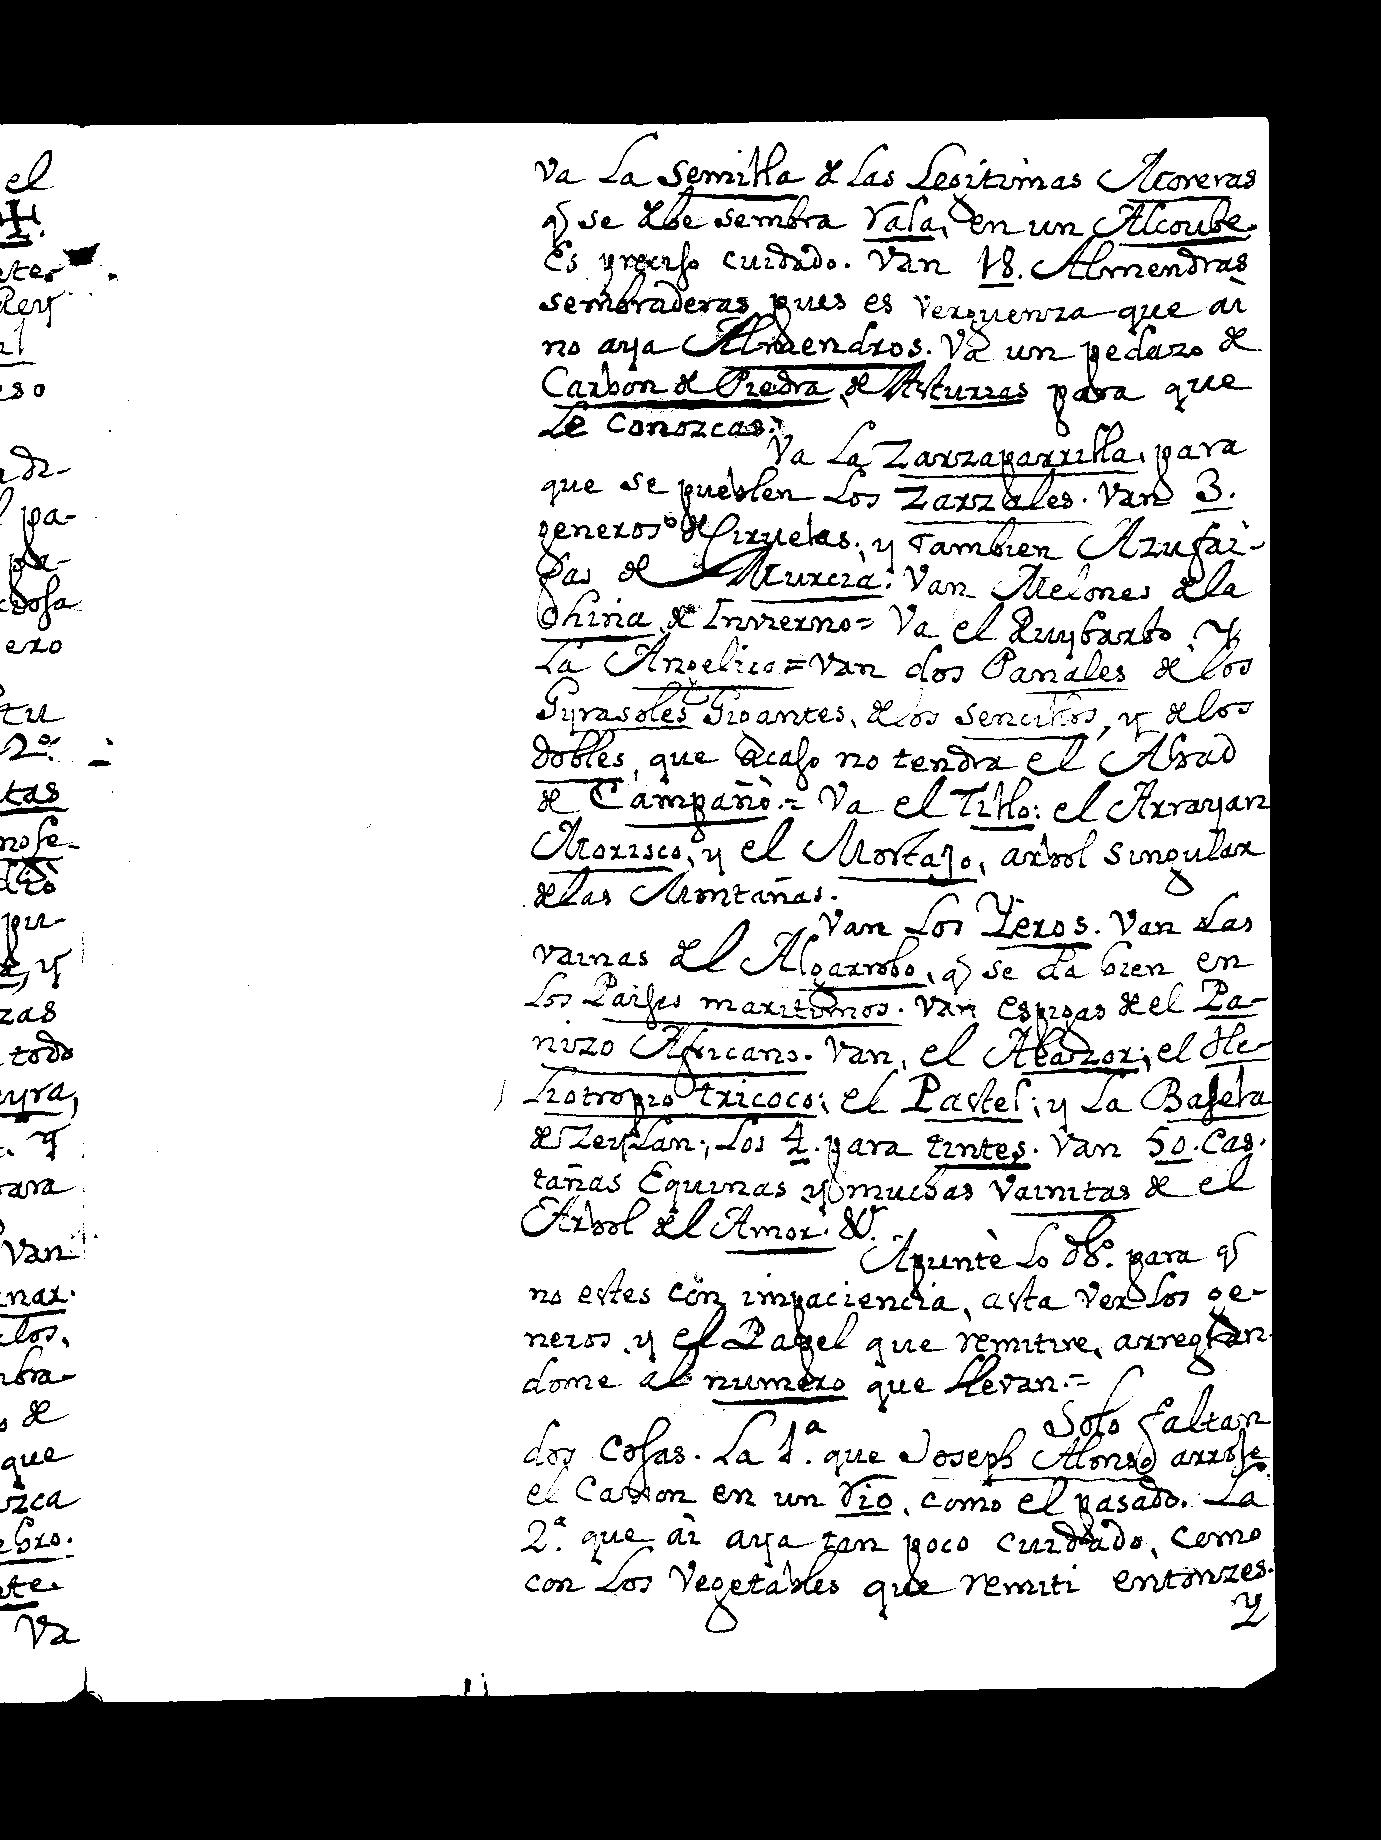 el
Rey
eso
pa-
ero
tu
2º.
tas
pu-
zas
todo
eyra,
Van
nar.
los,
mbra-
de
que
ebro.
Va
va La Semilla de las Legitimas Acoreras
q̃ se debe sembra rala, en un Alcoube.
Es preciso cuidado. Van 18. Almendras
sembraderas pues es verguenza que ai
no aya Almendros. Va un pedazo de
Carbon de Piedra de Asturias para que
Le conozcas.
Va La Zarzaparrilla, para
que se pueblen Los Zarzales. Van 3.
generos de Ciruelas, y Tambien Azufai-
fas de Murcia. Van Melones de la
China de Invierno = Va el Ruybarbo y
La Angelica = Van dos Panales de los
Gyrasoles Gigantes, de los sencillos, y de los
dobles, que acaso no tendra el Abad
de Campañò. = Va el Tillo: el Arrayan
Morisco, y el Mostajo, arbol singular
de las Montañas.
Van Los Yeros. Van las
vainas del Algarrobo, q̃ se da bien en
Los Paises maritimos. Van espigas de el Pa-
nizo Africano. Van, el Alazor; el He-
liotropio tricoco; el Pastel; y La Basela
de Zeylan; Los 4. para tintes. Van 50. Cas-
tañas Equinas y muchas vainitas de el
Arbol del Amor. &c.
Apuntè Lo dho. para q̃
no estes con impaciencia, asta ver Los ge-
neros y el Papel que remitire, arreglan-
dome al numero que llevan. =
Solo faltan
dos cosas. La 1.ª que Joseph Alonso arroje
el Caxon en un rio, como el pasado. La
2.ª que ai aya tan poco cuidado, como
con Los Vegetables que remiti entonzes.
y